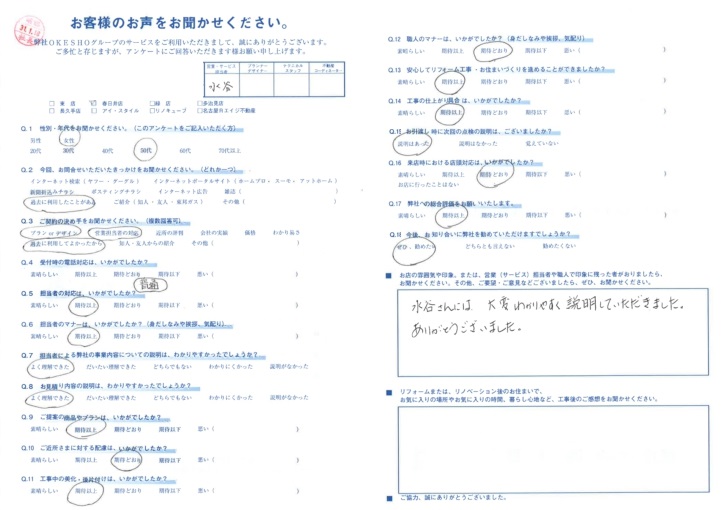 お客様のお声をお聞かせください。
弊社OKESHOグループのサービスをご利用いただきまして、誠にありがとうございます。
ご多忙と存じますが、アンケートにご回答いただきます様お願い申し上げます。
営業・サービス担当者 プランナーデザイナー テクニカルスタッフ 不動産コーディネーター
水谷
□ 本 店 ☑ 春日井店 □ 緑 店 □ 多治見店
□ 長久手店 □ アイ・スタイル □ リノキューブ □ 名古屋ウエイジ不動産
Q.1 性別・年代をお聞かせください。(このアンケートをご記入いただく方)
男性 女性
20代 30代 40代 50代 60代 70代以上
Q.2 今回、お問合せいただいたきっかけをお聞かせください。(どれか一つ)
インターネット検索(ヤフー・グーグル) インターネットポータルサイト(ホームプロ・スーモ・アットホーム)
新聞折込みチラシ ポスティングチラシ インターネット広告 雑誌( )
過去に利用したことがある ご紹介(知人・友人・東邦ガス) その他( )
Q.3 ご契約の決め手をお聞かせください。(複数回答可)
プラン or デザイン 営業担当者の対応 近所の評判 会社の実績 価格 わかり易さ
過去に利用してよかったから 知人・友人からの紹介 その他( )
Q.4 受付時の電話対応は、いかがでしたか?
素晴らしい 期待以上 期待どおり 期待以下 悪い( )
普通
Q.5 担当者の対応は、いかがでしたか?
素晴らしい 期待以上 期待どおり 期待以下 悪い( )
Q.6 担当者のマナーは、いかがでしたか?(身だしなみや挨拶、気配り)
素晴らしい 期待以上 期待どおり 期待以下 悪い( )
Q.7 担当者による弊社の事業内容についての説明は、わかりやすかったでしょうか?
よく理解できた だいたい理解できた どちらでもない わかりにくかった 説明がなかった
Q.8 お見積り内容の説明は、わかりやすかったでしょうか?
よく理解できた だいたい理解できた どちらでもない わかりにくかった 説明がなかった
Q.9 ご提案の商品やプランは、いかがでしたか?
素晴らしい 期待以上 期待どおり 期待以下 悪い( )
Q.10 ご近所さまに対する配慮は、いかがでしたか?
素晴らしい 期待以上 期待どおり 期待以下 悪い( )
Q.11 工事中の美化・後片付けは、いかがでしたか?
素晴らしい 期待以上 期待どおり 期待以下 悪い( )
Q.12 職人のマナーは、いかがでしたか?(身だしなみや挨拶、気配り)
素晴らしい 期待以上 期待どおり 期待以下 悪い( )
Q.13 安心してリフォーム工事・お住まいづくりを進めることができましたか?
素晴らしい 期待以上 期待どおり 期待以下 悪い( )
Q.14 工事の仕上がり具合は、いかがでしたか?
素晴らしい 期待以上 期待どおり 期待以下 悪い( )
Q.15 お引渡し時に次回の点検の説明は、ございましたか?
説明はあった 説明はなかった 覚えていない
Q.16 来店時における店頭対応は、いかがでしたか?
素晴らしい 期待以上 期待どおり 期待以下 悪い( )
お店に行ったことはない
Q.17 弊社への総合評価をお願いいたします。
素晴らしい 期待以上 期待どおり 期待以下 悪い( )
Q.18 今後、お知り合いに弊社を勧めていただけますでしょうか?
ぜひ、勧めたい どちらとも言えない 勧めたくない
■ お店の雰囲気や印象、または、営業(サービス)担当者や職人で印象に残った者がおりましたら、
お聞かせください。その他、ご要望・ご意見などございましたら、ぜひ、お聞かせください。
水谷さんには 大変わかりやすく説明していただきました。
ありがとうございました。
■ リフォームまたは、リノベーション後のお住まいで、
お気に入りの場所やお気に入りの時間、暮らし心地など、工事後のご感想をお聞かせください。
■ ご協力、誠にありがとうございました。